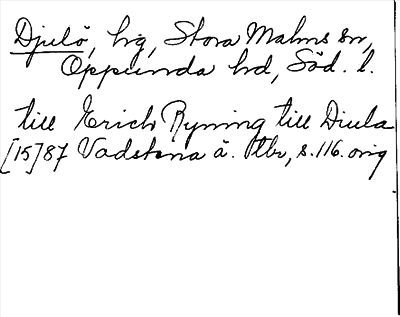 Djulö, hg, Stora Malms sn,
Oppunda hd, Söd. l.
till Erich Ryning till Diula
[15]87 Vadstena ä. Utbr, s. 116. orig